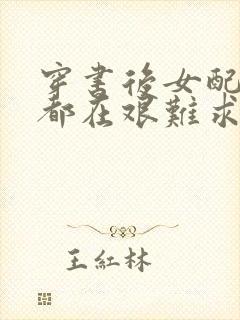 穿書後女配
都在艱難求
王紅林